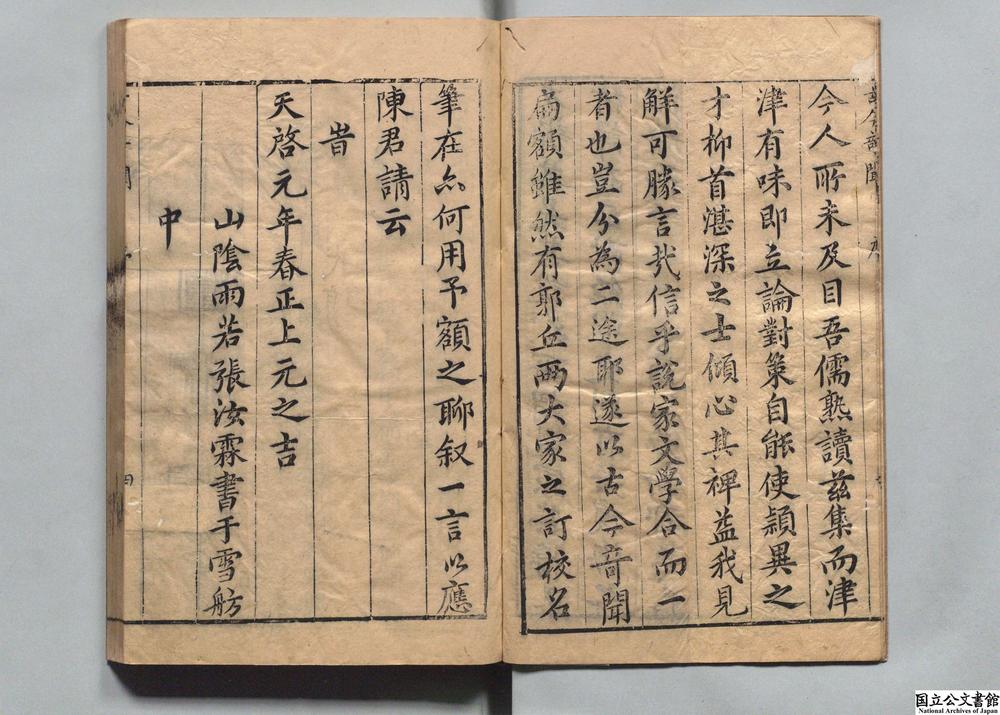 今人所未及目吾儒熟讀茲集而津
津有味即立論對策自能使穎異之
才抑首湛深之士傾心其裨益我見
解可勝言哉信乎說家文學合而一
者也豈分為二途耶遂以古今奇聞
為額雖然有郭丘兩大家之訂校名
筆在亦何用予額之聊叙一言以應
陳君請云
旹
天啓元年春正上元之吉
山陰雨若張汯霖書于雪舫
中
国立公文書館
National Archives of Japan